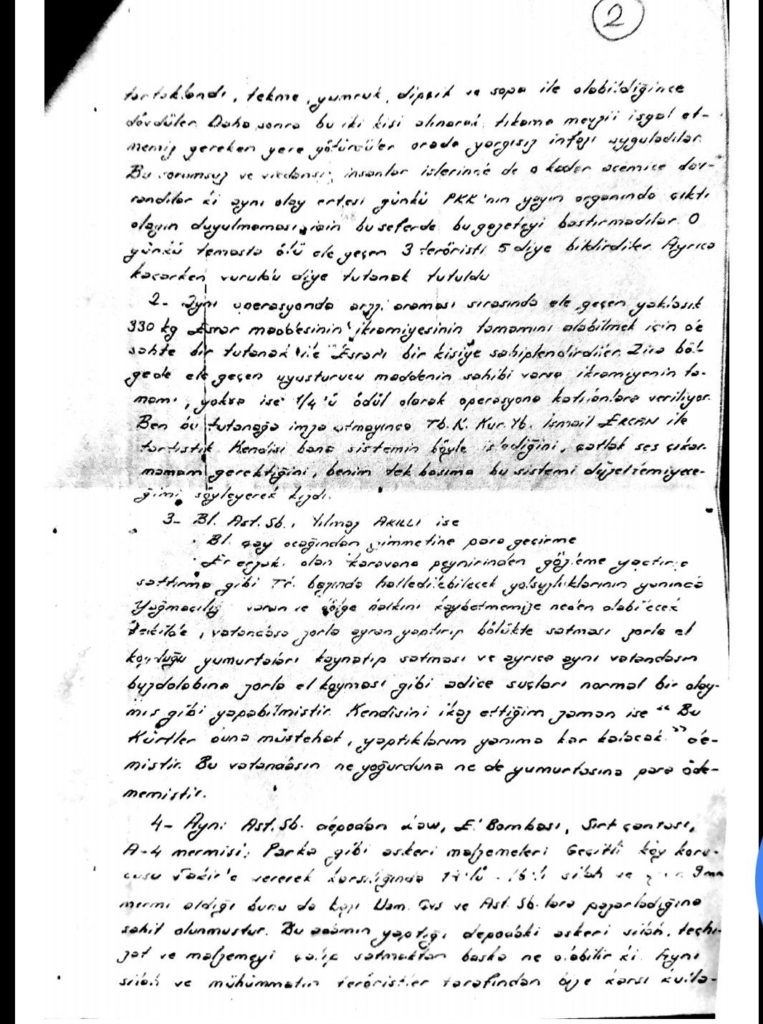 2
tartaklandı, tekme, yumruk, dipçik ve sopa ile olabildiğince
dövdüler. Daha sonra bu iki kişi alınarak, tıkama mevzii işgal et-
memiz gereken yere götürdüler orada yargısız infazı uyguladılar.
Bu sorumsuz ve vicdansız insanlar işlerinde de o kadar acemice dav-
randılar ki aynı olay ertesi günkü PKK'nın yayın organında çıktı
olayın duyulmaması için bu seferde bu gazeteyi bastırmadılar. O
günkü temasta ölü ele geçen 3 teröristi 5 diye bildirdiler. Ayrıca
kaçarken vuruldu diye tutanak tutuldu
2- Aynı operasyonda arazi araması sırasında ele geçen yaklaşık
330 kg Esrar maddesinin ikramiyesinin tamamını alabilmek için de
sahte bir tutanak ile Esrarı bir kişiye sahiplendirdiler. Zira böl-
gede ele geçen uyuşturucu maddenin sahibi varsa ikramiyenin ta-
mamı, yoksa ise 1/4'ü ödül olarak operasyona katılanlara veriliyor.
Ben bu tutanağa imza atmayınca Tb. K. Kur. Yb. İsmail ERCAN ile
tartıştık. Kendisi bana sistemin böyle işlediğini, çatlak ses çıkar-
mamam gerektiğini, benim tek başıma bu sistemi düzeltemiyece-
ğimi söyleyerek kızdı.
3- Bl. Ast. Sb. Yılmaz AKILLI ise
· Bl. çay ocağından zimmetine para geçirme
· Er erzakı olan karavana peynirinden gözleme yaptırıp
sattırma gibi Tr. bazında halledilebilecek yolsuzluklarının yanında
Yağmacılığa varan ve bölge halkını kaybetmemize neden olabilecek
şekilde, vatandaşa zorla ayran yaptırıp bölükte satması zorla el
koyduğu yumurtaları kaynatıp satması ve ayrıca aynı vatandaşın
buzdolabına zorla el koyması gibi adice suçları normal bir olay-
mış gibi yapabilmiştir. Kendisini ikaz ettiğim zaman ise "Bu
Kürtler buna müstehak, yaptıklarım yanıma kar kalacak." de-
miştir. Bu vatandaşın ne yoğurduna ne de yumurtasına para öde-
memiştir.
4- Aynı Ast. Sb. depodan Law, El Bombası, Sırt çantası,
A-4 mermisi, Parka gibi askeri malzemeleri Geçitli köy koru-
cusu Şakir'e vererek karşılığında 14'lü - 16'lı silah ve 9mm
mermi aldığı bunu da bazı Uzm. Çvş ve Ast. Sb. lara pazarladığına
şahit olunmuştur. Bu adamın yaptığı depodaki askeri silah, teçhi-
zat ve malzemeyi çalıp satmaktan başka ne olabilir ki. Aynı
silah ve mühimmatın teröristler tarafından bize karşı kulla-